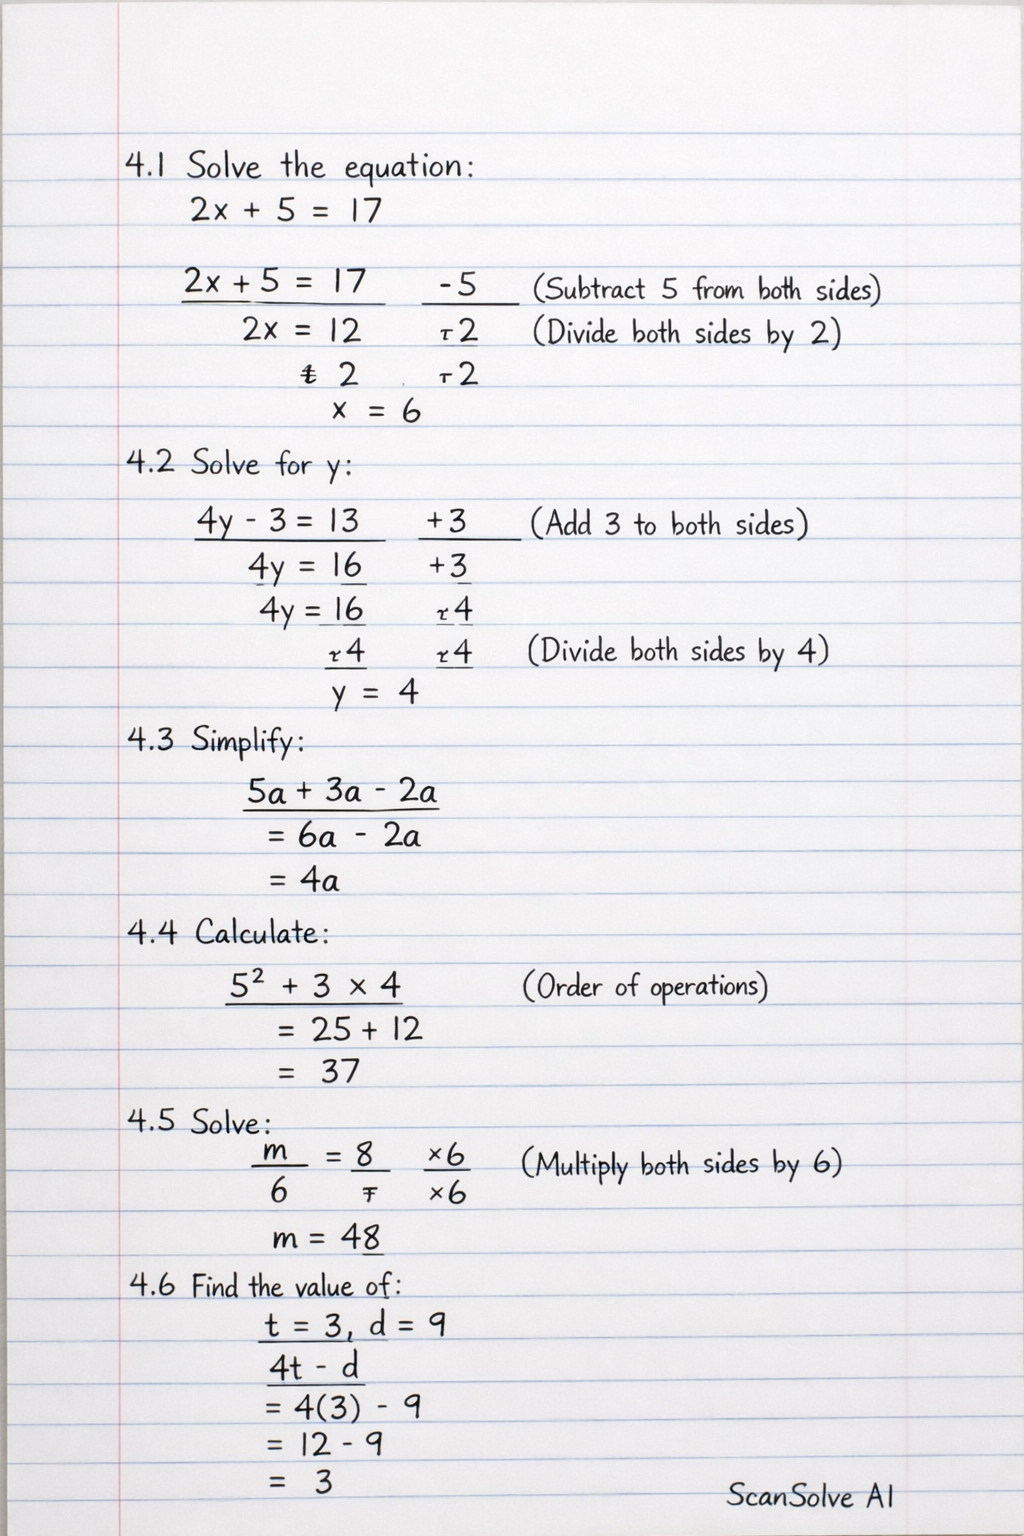 4.1 Solve the equation:
2x + 5 = 17
2x + 5 = 17 -5 (Subtract 5 from both sides)
2x = 12 τ2 (Divide both sides by 2)
2 τ2
x = 6
4.2 Solve for y:
4y - 3 = 13 +3 (Add 3 to both sides)
4y = 16 +3
4y = 16 τ4
τ4 τ4 (Divide both sides by 4)
y = 4
4.3 Simplify:
5a + 3a - 2a
= 6a - 2a
= 4a
4.4 Calculate:
5² + 3 × 4 (Order of operations)
= 25 + 12
= 37
4.5 Solve:
m = 8 ×6 (Multiply both sides by 6)
6 ×6
m = 48
4.6 Find the value of:
t = 3, d = 9
4t - d
= 4(3) - 9
= 12 - 9
= 3
ScanSolve AI